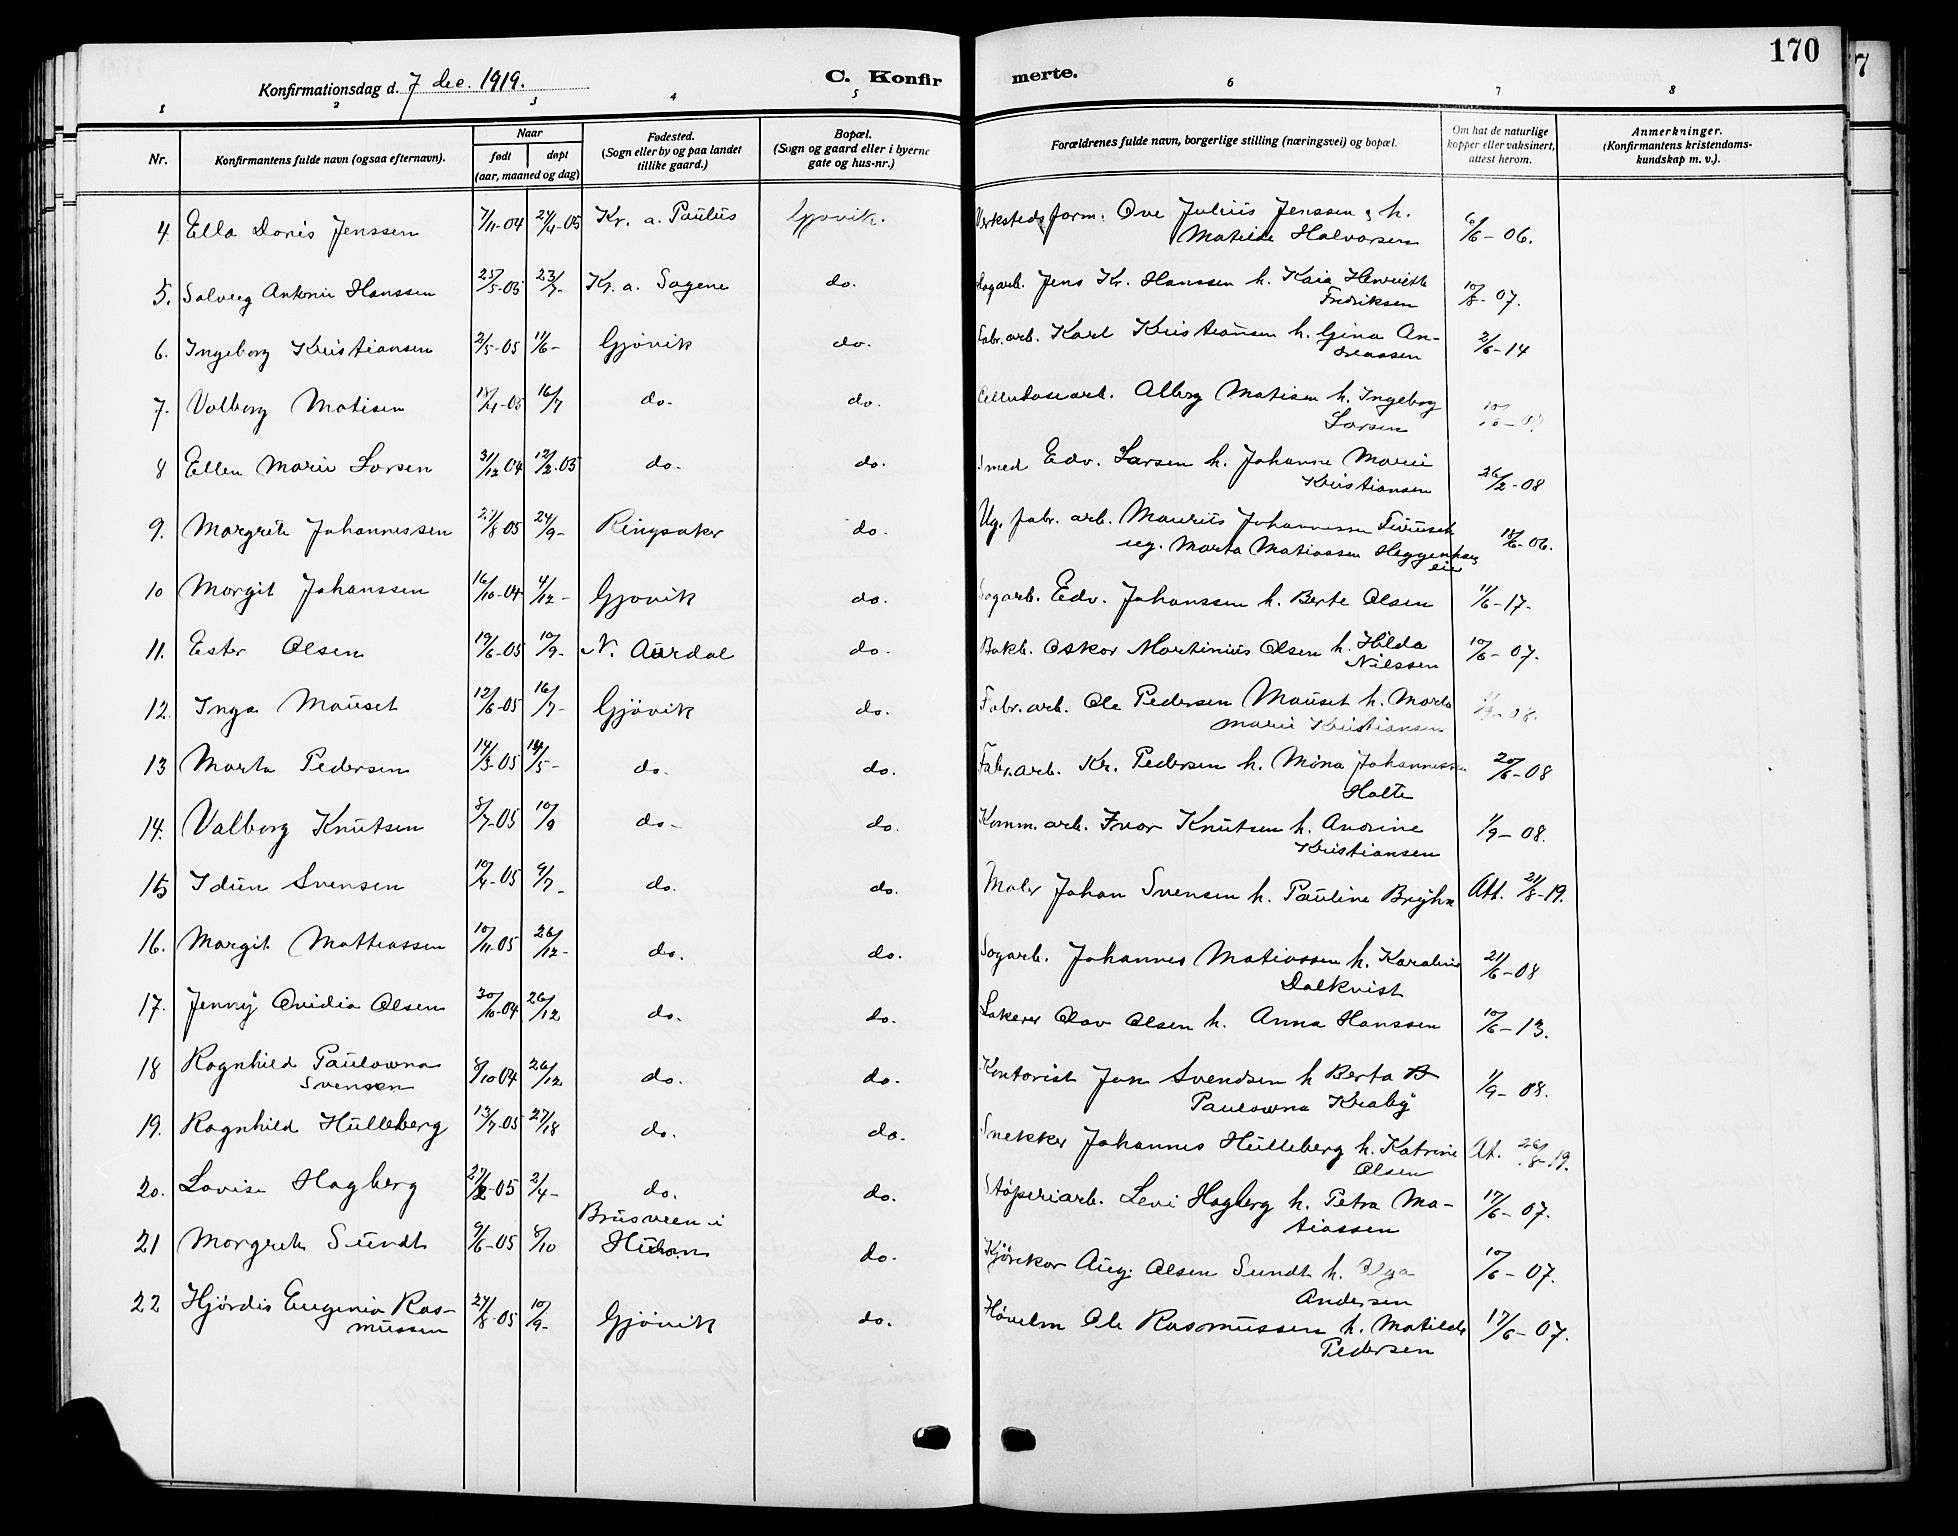 170
7
Konfirmationsdag d. 7 dec. 1919.
C. Konfirmerte.
1 2 3 4 5 6 7 8
Nr.
Konfirmantens fulde navn (ogsaa efternavn).
Naar
født døpt
(aar, maaned og dag)
Fødested.
(Sogn eller by og paa landet
tillike gaard.)
Bopæl.
(Sogn og gaard eller i byerne
gate og hus-nr.)
Forældrenes fulde navn, borgerlige stilling (næringsvei) og bopæl.
Om hat de naturlige
kopper eller vaksinert,
attest herom.
Anmerkninger.
(Konfirmantens kristendoms-
kundskap m. v.).
4. Ella Doris Jenssen 7/11-04 24/4-05 Kr. a. Paulus Gjøvik. Verkstedsform. Ove Julius Jenssen, h. 6/6-06.
Matilde Halvorsen
5. Solveig Antonie Hanssen 25/5-05 23/7- Kr. a. Sagene do. Sagarb. Jens Kr. Hanssen h. Kaia Henriette 10/8-07.
Fredriksen
6. Ingeborg Kristiansen 2/5-05 11/6- Gjøvik do. Fabr. arb. Karl Kristiansen h. Gina An- 2/6-14
dreassen
7. Valborg Matisen 18/4-05 16/7 do. do. Cellulosearb. Alberg Matisen h. Ingeborg
Larsen
8 Ellen Marie Larsen 31/12 04 12/2-05 do. do. Smed Edv. Larsen h. Johanne Marie 26/2-08
Kristiansen
9. Margrete Johannessen 27/8 05 24/9- Ringsaker do. Ug. fabr. arb. Maurits Johannessen 18/6-06.
ug. Marta Matiassen Heggenhus
eie
10 Morgit Johanssen 16/10-04 4/12- Gjøvik do. Sagarb. Edv. Johanssen h. Berte Olsen 11/6-17.
11. Ester Olsen 19/6-05 10/9- N. Aurdal do. Bokb. Oskar Martinius Olsen h. Hilda 10/6-07.
Nilssen
12. Inga Mauset 12/6-05 16/7- Gjøvik do. Fabr. arb. Ole Pedersen Mauset h. Marta
Marie Kristiansen
13 Marta Pedersen 14/3-05 14/5- do. do. Fabr. arb. Kr. Pedersen h. Mina Johannessen 20/6-08
Holte
14. Valborg Knutsen 8/7-05 10/9 do. do. Komm. arb. Ivar Knutsen h. Andrine 1/9-08.
Kristiansen
15 Idun Svensen 10/4-05 9/7- do. do. Maler Johan Svensen h. Pauline Bryhn Att. 21/8-19.
16. Margit Mattiassen 10/11-05 26/12- do. do. Sagarb. Johannes Matiassen h. Karoline 21/6-08
Dalkvist
17. Jenny Ovidia Olsen 30/10-04 26/12 do. do. Lakerer Olav Olsen h. Anna Hanssen 10/6-13.
18 Ragnhild Paulowna 8/10 04 26/12 do. do. Kontorist Jon Svendsen h Berta 1/9-08.
Svensen Paulowna Kraby
19. Ragnhild Hulleberg 13/7-05 27/18 do. do. Snekker Johannes Hulleberg h. Katrine At. 26/8-19.
Olsen
20. Lovise Hagberg 27/2-05 2/4- do. do. Støperiarb. Levi Hagberg h. Petra Ma- 17/6-07.
tiassen
Brusveen i
21 Morgrete Sundt 9/6-05 8/10 Hunn do. Kjørekar Aug. Olsen Sundt h. Olga 10/6-07.
Andersen
22 Hjørdis Eugenia Ras- 24/8-05 10/9- Gjøvik do. Høvelm Ole Rasmussen h. Matilde 17/6-07.
mussen Pedersen